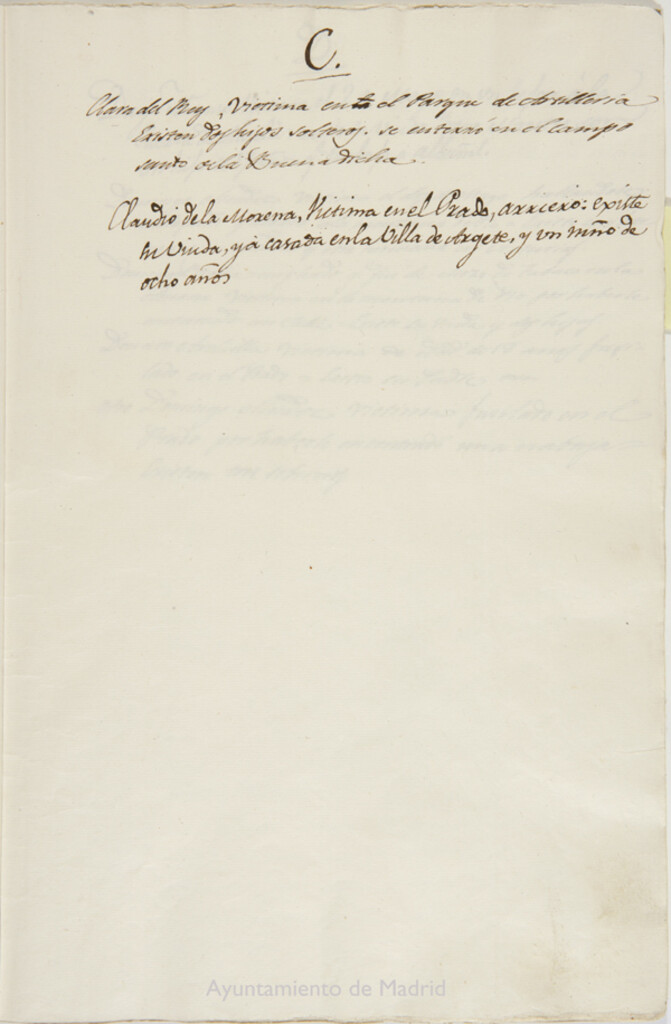 C.
Clara del Rey, Victima en el Parque de Artilleria
Existen dos hijos solteros. se enterró en el campo
santo de la Buena dicha.
Claudio de la Morena, Victima en el Prado, arriero: existe
su Viuda, yá casada en la Villa de Argete, y un niño de
ocho años
Ayuntamiento de Madrid